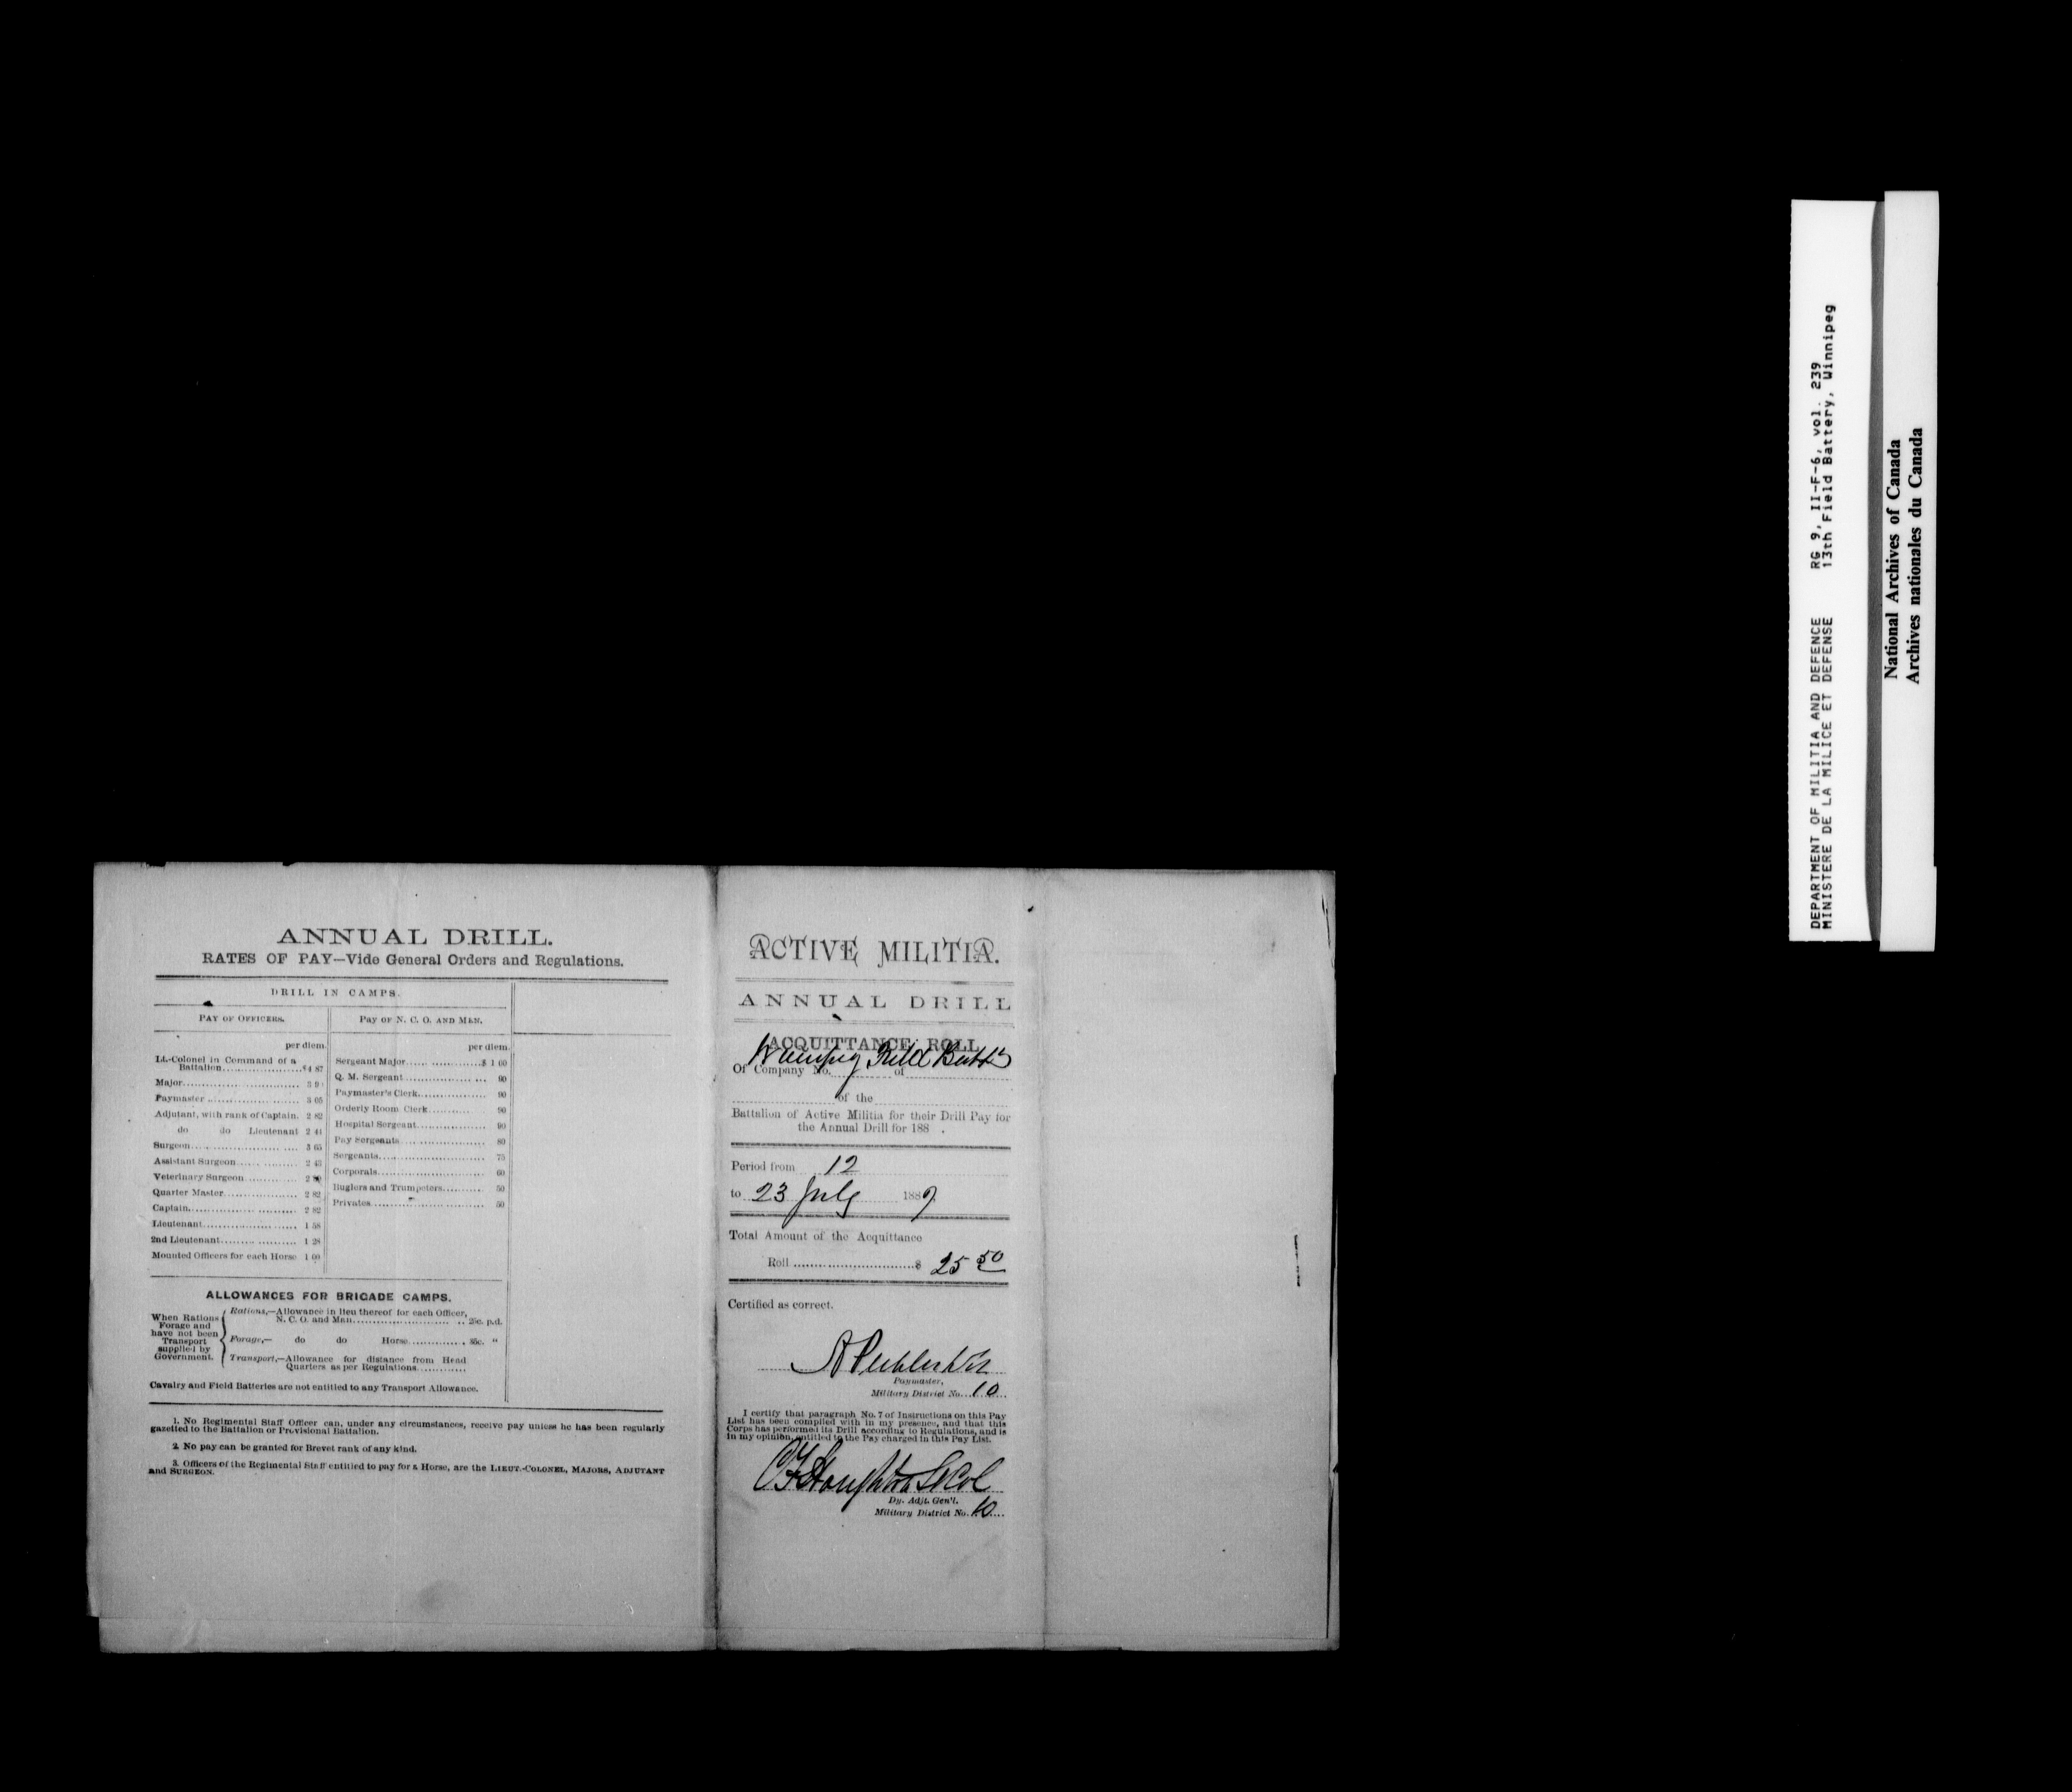 ANNUAL DRILL.
RATES OF PAY—Vide General Orders and Regulations.
DRILL IN CAMPS.
PAY OF OFFICERS.
per diem.
Lt.-Colonel in Command of a
Battalion....................$4 87
Major............................ 3 9
Paymaster ...................... 3 05
Adjutant, with rank of Captain. 2 82
do do Lieutenant 2 41
Surgeon.......................... 3 65
Assistant Surgeon............... 2 43
Veterinary Surgeon............. 2
Quarter Master.................. 2 82
Captain.......................... 2 82
Lieutenant....................... 1 58
2nd Lieutenant.................. 1 28
Mounted Officers for each Horse 1 00
PAY OF N. C. O. AND MEN.
per diem.
Sergeant Major..................$ 1 00
Q. M. Sergeant .................... 90
Paymaster's Clerk................. 90
Orderly Room Clerk............. 90
Hospital Sergeant................. 90
Pay Sergeants..................... 80
Sergeants.......................... 75
Corporals.......................... 60
Buglers and Trumpeters.......... 50
Privates............................ 50
ALLOWANCES FOR BRIGADE CAMPS.
When Rations
Forage and
have not been
Transport
supplied by
Government.
Rations,—Allowance in lieu thereof for each Officer,
N. C. O. and Man............................ 25c. p.d.
Forage,— do do Horse.............. 35c. "
Transport,—Allowance for distance from Head
Quarters as per Regulations............
Cavalry and Field Batteries are not entitled to any Transport Allowance.
1. No Regimental Staff Officer can, under any circumstances, receive pay unless he has been regularly
gazetted to the Battalion or Provisional Battalion.
2. No pay can be granted for Brevet rank of any kind.
3. Officers of the Regimental Staff entitled to pay for a Horse, are the LIEUT.-COLONEL, MAJORS, ADJUTANT
and SURGEON.
ACTIVE MILITIA.
ANNUAL DRILL
ACQUITTANCE ROLL
Winnipeg Field Batty
Of Company No. of
of the
Battalion of Active Militia for their Drill Pay for
the Annual Drill for 188 .
Period from 12
to 23 July 1887
Total Amount of the Acquittance
Roll ..............................$ 25 50
Certified as correct.
Paymaster,
Military District No. 10
I certify that paragraph No. 7 of Instructions on this Pay
List has been complied with in my presence, and that this
Corps has performed its Drill according to Regulations, and is
in my opinion, entitled to the Pay charged in this Pay List.
CF Houghton Lt Col
Dy. Adjt. Gen'l.
Military District No. 10
DEPARTMENT OF MILITIA AND DEFENCE RG 9, II-F-6, vol. 239
MINISTERE DE LA MILICE ET DEFENSE 13th Field Battery, Winnipeg
National Archives of Canada
Archives nationales du Canada